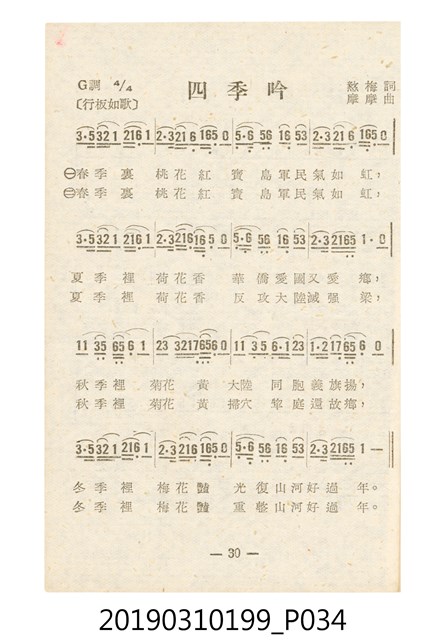 G調 4/4 四季吟 梅詞
〔行板如歌〕 摩摩曲
3·5321 2161 | 2·321 6 165 0 | 5·6 56 16 53 | 2·3 21 6 165 0
㊀春季裏 桃花紅 寶島軍民氣如虹,
㊁春季裏 桃花紅 寶島軍民氣如虹,
3·5321 2161 | 2·3216 16 5 0 | 5·6 56 16 53 | 2·3 2165 1·0
夏季裡 荷花香 華僑愛國又愛鄉,
夏季裡 荷花香 反攻大陸滅强梁,
11 35 65 6 1 | 23 3217656 0 | 11 3 5 6·1 23 | 1·2 1765 6 0
秋季裡 菊花黃 大陸同胞義旗揚,
秋季裡 菊花黃 掃穴犂庭還故鄉,
3·5321 2161 | 2·3 216 165 0 | 5·6 56 16 53 | 2·3 2165 1 —
冬季裡 梅花豔 光復山河好過年。
冬季裡 梅花豔 重整山河好過年。
— 30 —
20190310199_P034